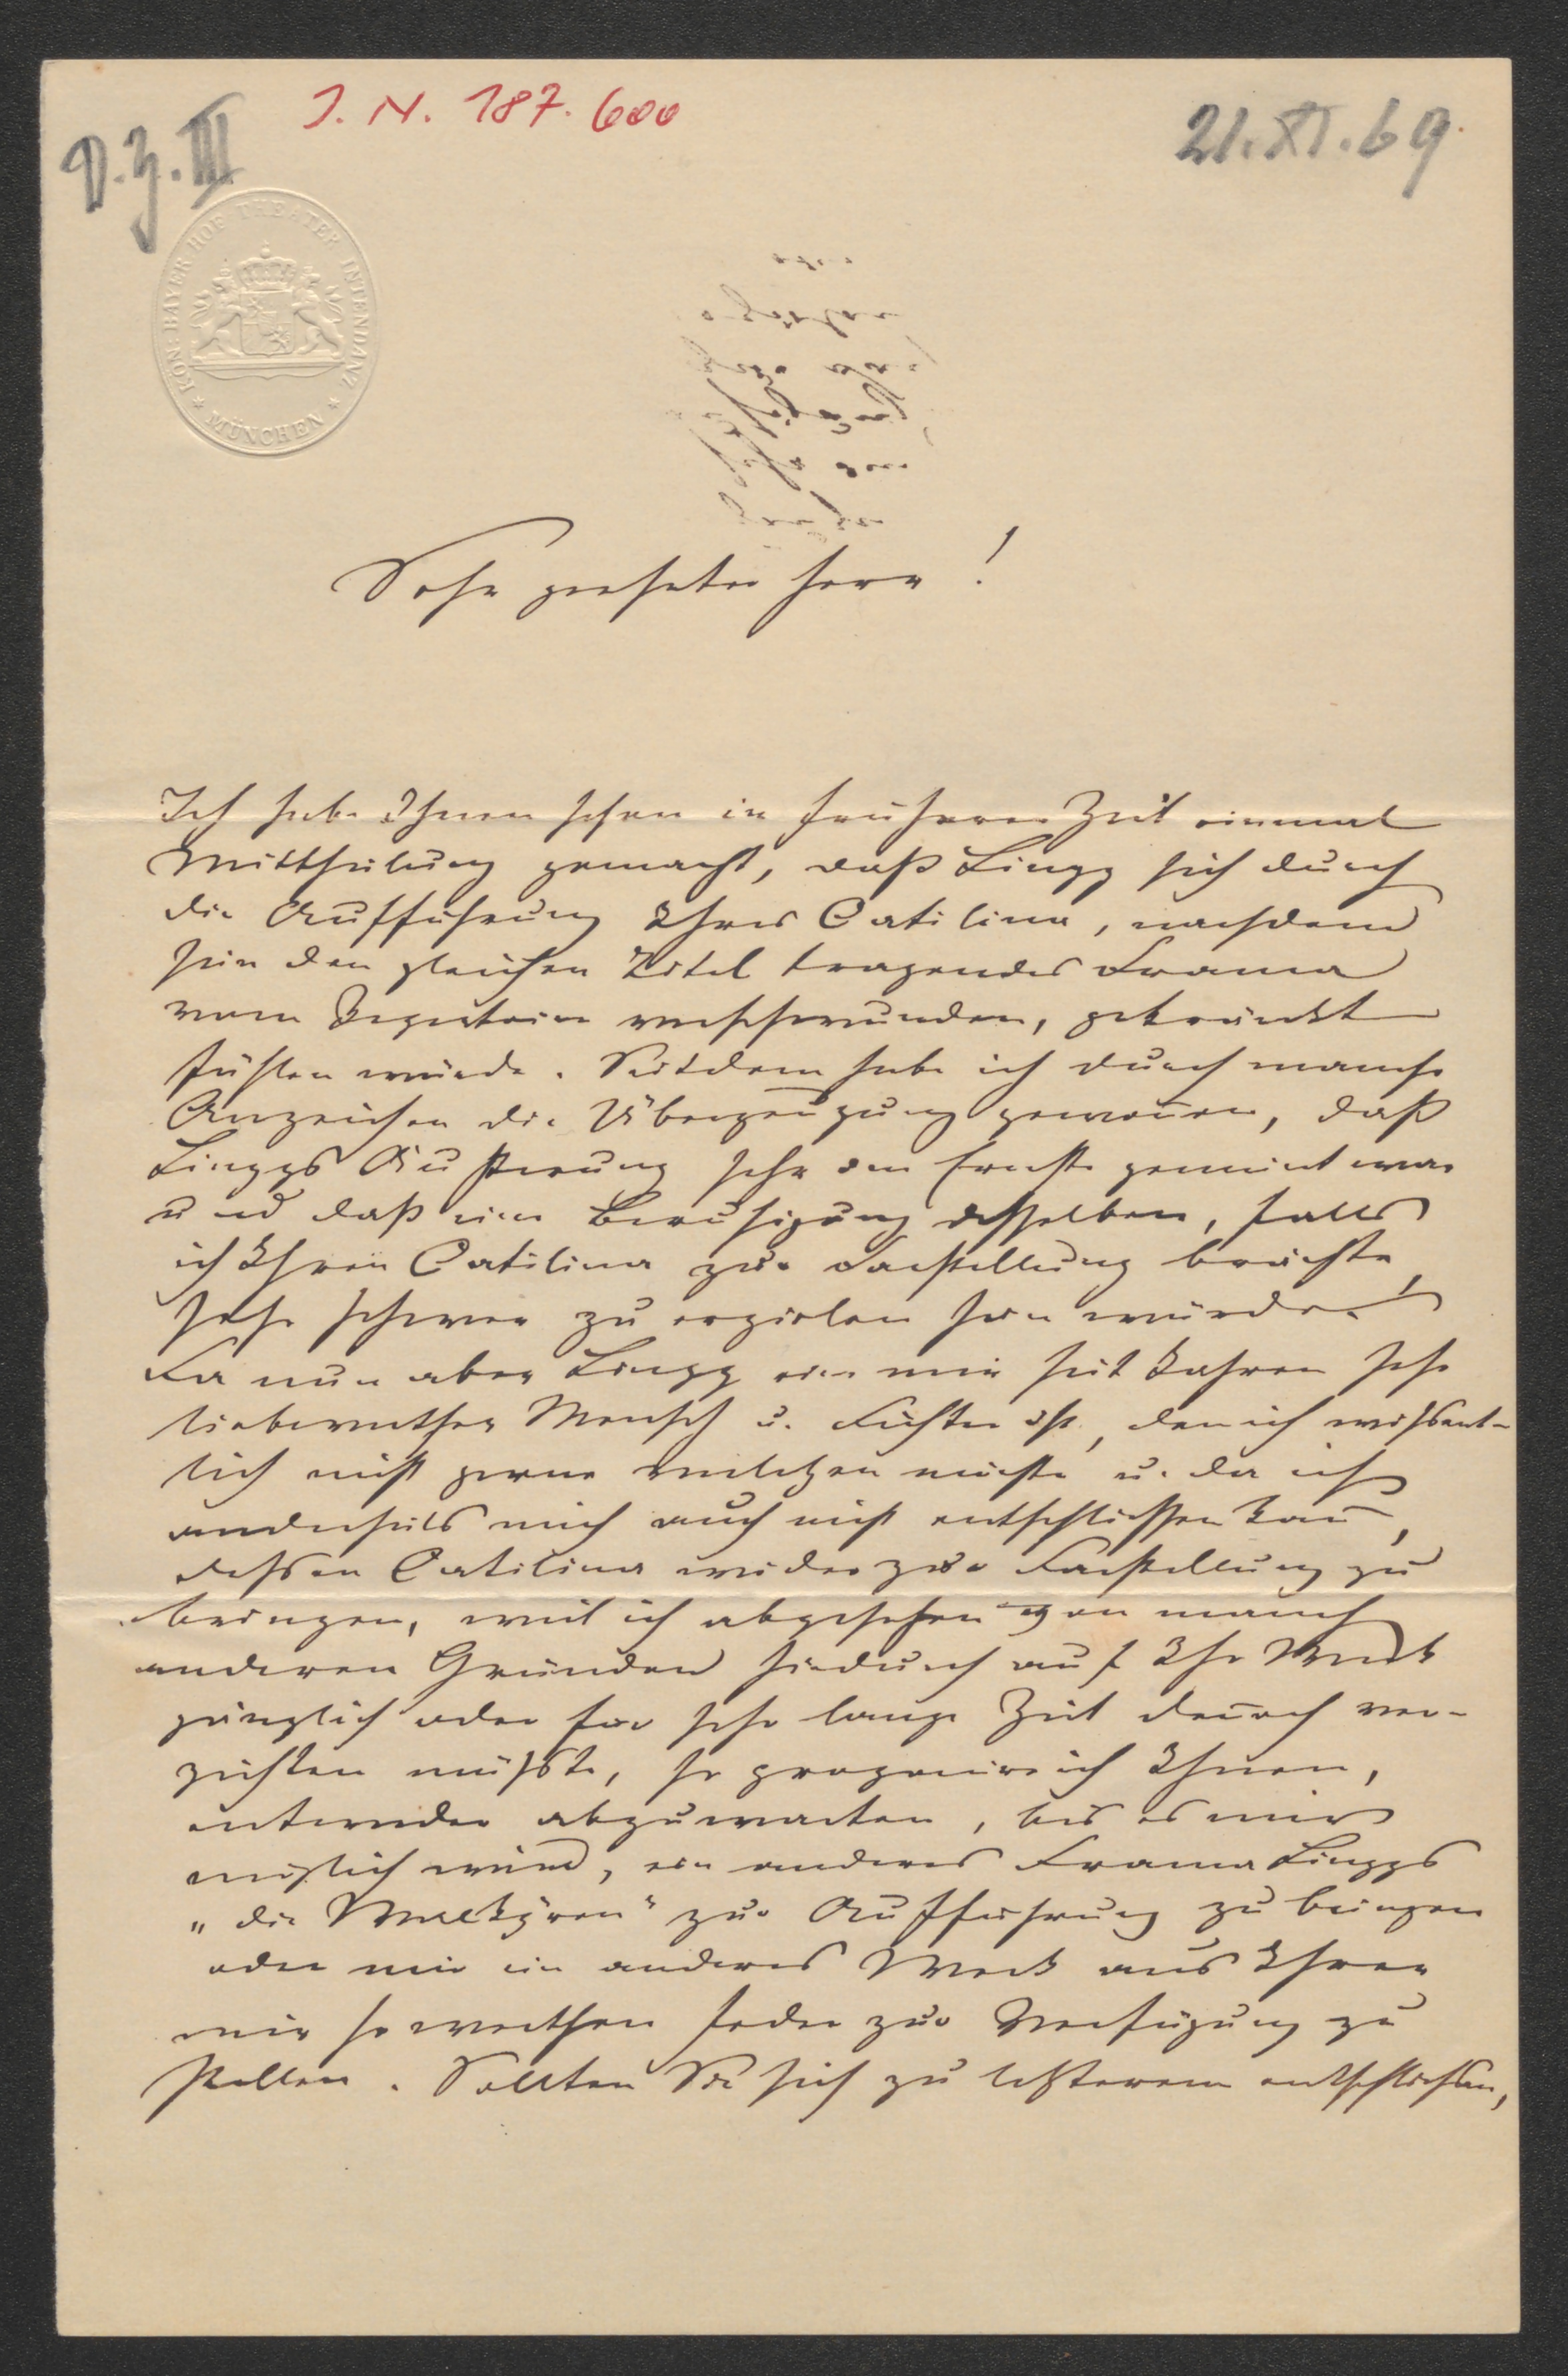 J. N. 187.600
21.XI.69.
D.Z.III
KÖN. BAYER HOF THEATER INTENDANZ
* MÜNCHEN *
Sehr geehrter Herr!
Ich habe Ihnen schon in früherer Zeit einmal
Mittheilung gemacht, daß Lingg sich durch
die Aufführung Ihres Catilina, nachdem
sein den gleichen Titel tragendes Drama
vom Repertoire verschwunden, gekränkt
fühlen würde. Seitdem habe ich durch manche
Anzeichen die Überzeugung gewon̄en, daß
Linggs Äußerung sehr im Ernste gemeint war
und daß eine Beruhigung desselben, falls
ich Ihren Catilina zur Darstellung brächte,
sehr schwer zu erzielen sein würde.
Da nun aber Lingg ein mir seit Jahren sehr
liebwerther Mensch u. Dichter ist, den ich wissent-
lich nicht gerne verletzen möchte u. da ich
anderseits mich auch nicht entschliessen kan̄,
dessen Catilina wieder zur Darstellung zu
bringen, weil ich abgesehen von manch
anderen Gründen hiedurch auf Ihr Werk
gänzlich oder für sehr lange Zeit den̄och ver-
zichten müsste, so proponire ich Ihnen,
entweder abzuwarten, bis es mir
möglich wird, ein anderes Drama Linggs
„die Walkyren" zur Aufführung zu bringen
oder mir ein anderes Werk aus Ihrer
mir so werthen Feder zur Verfügung zu
stellen. Sollten Sie sich zu letzterem entschließen,